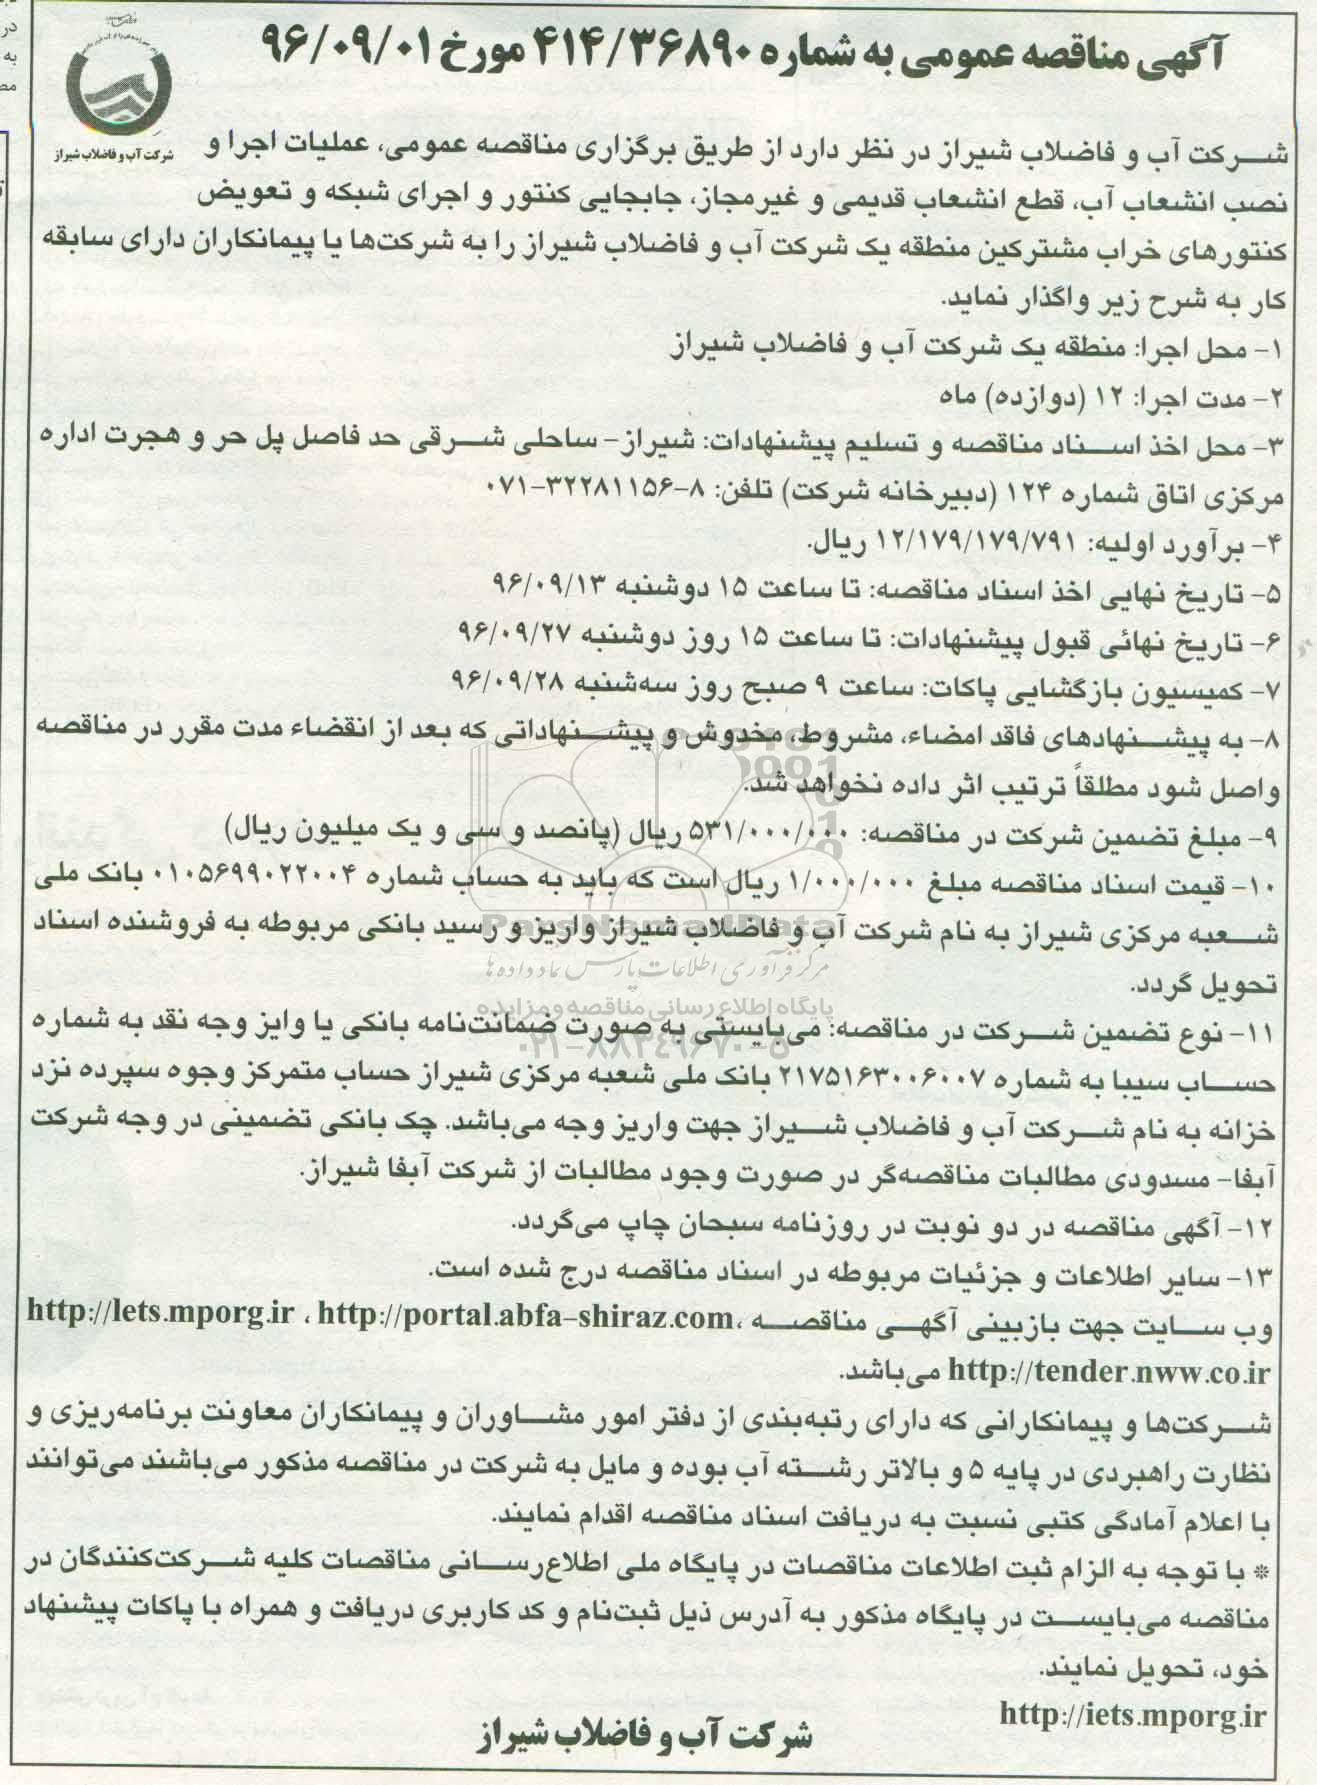 آگهی مناقصه عمومی به شماره ۴۱۴/۳۶۸۹۰ مورخ ۹۶/۰۹/۰۱
شرکت آب و فاضلاب شیراز
شرکت آب و فاضلاب شیراز در نظر دارد از طریق برگزاری مناقصه عمومی، عملیات اجرا و
نصب انشعاب آب، قطع انشعاب قدیمی و غیرمجاز، جابجایی کنتور و اجرای شبکه و تعویض
کنتورهای خراب مشترکین منطقه یک شرکت آب و فاضلاب شیراز را به شرکت‌ها یا پیمانکاران دارای سابقه
کار به شرح زیر واگذار نماید.
۱- محل اجرا: منطقه یک شرکت آب و فاضلاب شیراز
۲- مدت اجرا: ۱۲ (دوازده) ماه
۳- محل اخذ اسناد مناقصه و تسلیم پیشنهادات: شیراز- ساحلی شرقی حد فاصل پل حر و هجرت اداره
مرکزی اتاق شماره ۱۲۴ (دبیرخانه شرکت) تلفن: ۸-۳۲۲۸۱۱۵۶-۰۷۱
۴- برآورد اولیه: ۱۲/۱۷۹/۱۷۹/۷۹۱ ریال.
۵- تاریخ نهایی اخذ اسناد مناقصه: تا ساعت ۱۵ دوشنبه ۹۶/۰۹/۱۳
۶- تاریخ نهائی قبول پیشنهادات: تا ساعت ۱۵ روز دوشنبه ۹۶/۰۹/۲۷
۷- کمیسیون بازگشایی پاکات: ساعت ۹ صبح روز سه‌شنبه ۹۶/۰۹/۲۸
۸- به پیشنهادهای فاقد امضاء، مشروط، مخدوش و پیشنهاداتی که بعد از انقضاء مدت مقرر در مناقصه
واصل شود مطلقاً ترتیب اثر داده نخواهد شد.
۹- مبلغ تضمین شرکت در مناقصه: ۵۳۱/۰۰۰/۰۰۰ ریال (پانصد و سی و یک میلیون ریال)
۱۰- قیمت اسناد مناقصه مبلغ ۱/۰۰۰/۰۰۰ ریال است که باید به حساب شماره ۰۱۰۵۶۹۹۰۲۲۰۰۴ بانک ملی
شعبه مرکزی شیراز به نام شرکت آب و فاضلاب شیراز واریز و رسید بانکی مربوطه به فروشنده اسناد
تحویل گردد.
ParsNamadData
مرکز فرآوری اطلاعات پارس نماد داده ها
پایگاه اطلاع رسانی مناقصه و مزایده
۰۲۱-۸۸۳۴۹۶۷۰-۵
۱۱- نوع تضمین شرکت در مناقصه: می‌بایستی به صورت ضمانت‌نامه بانکی یا وایز وجه نقد به شماره
حساب سیبا به شماره ۲۱۷۵۱۶۳۰۰۶۰۰۷ بانک ملی شعبه مرکزی شیراز حساب متمرکز وجوه سپرده نزد
خزانه به نام شرکت آب و فاضلاب شیراز جهت واریز وجه می‌باشد. چک بانکی تضمینی در وجه شرکت
آبفا- مسدودی مطالبات مناقصه‌گر در صورت وجود مطالبات از شرکت آبفا شیراز.
۱۲- آگهی مناقصه در دو نوبت در روزنامه سبحان چاپ می‌گردد.
۱۳- سایر اطلاعات و جزئیات مربوطه در اسناد مناقصه درج شده است.
وب سایت جهت بازبینی آگهی مناقصه ،http://lets.mporg.ir ، http://portal.abfa-shiraz.com
http://tender.nww.co.ir می‌باشد.
شرکت‌ها و پیمانکارانی که دارای رتبه‌بندی از دفتر امور مشاوران و پیمانکاران معاونت برنامه‌ریزی و
نظارت راهبردی در پایه ۵ و بالاتر رشته آب بوده و مایل به شرکت در مناقصه مذکور می‌باشند می‌توانند
با اعلام آمادگی کتبی نسبت به دریافت اسناد مناقصه اقدام نمایند.
* با توجه به الزام ثبت اطلاعات مناقصات در پایگاه ملی اطلاع‌رسانی مناقصات کلیه شرکت‌کنندگان در
مناقصه می‌بایست در پایگاه مذکور به آدرس ذیل ثبت‌نام و کد کاربری دریافت و همراه با پاکات پیشنهاد
خود، تحویل نمایند.
http://iets.mporg.ir
شرکت آب و فاضلاب شیراز